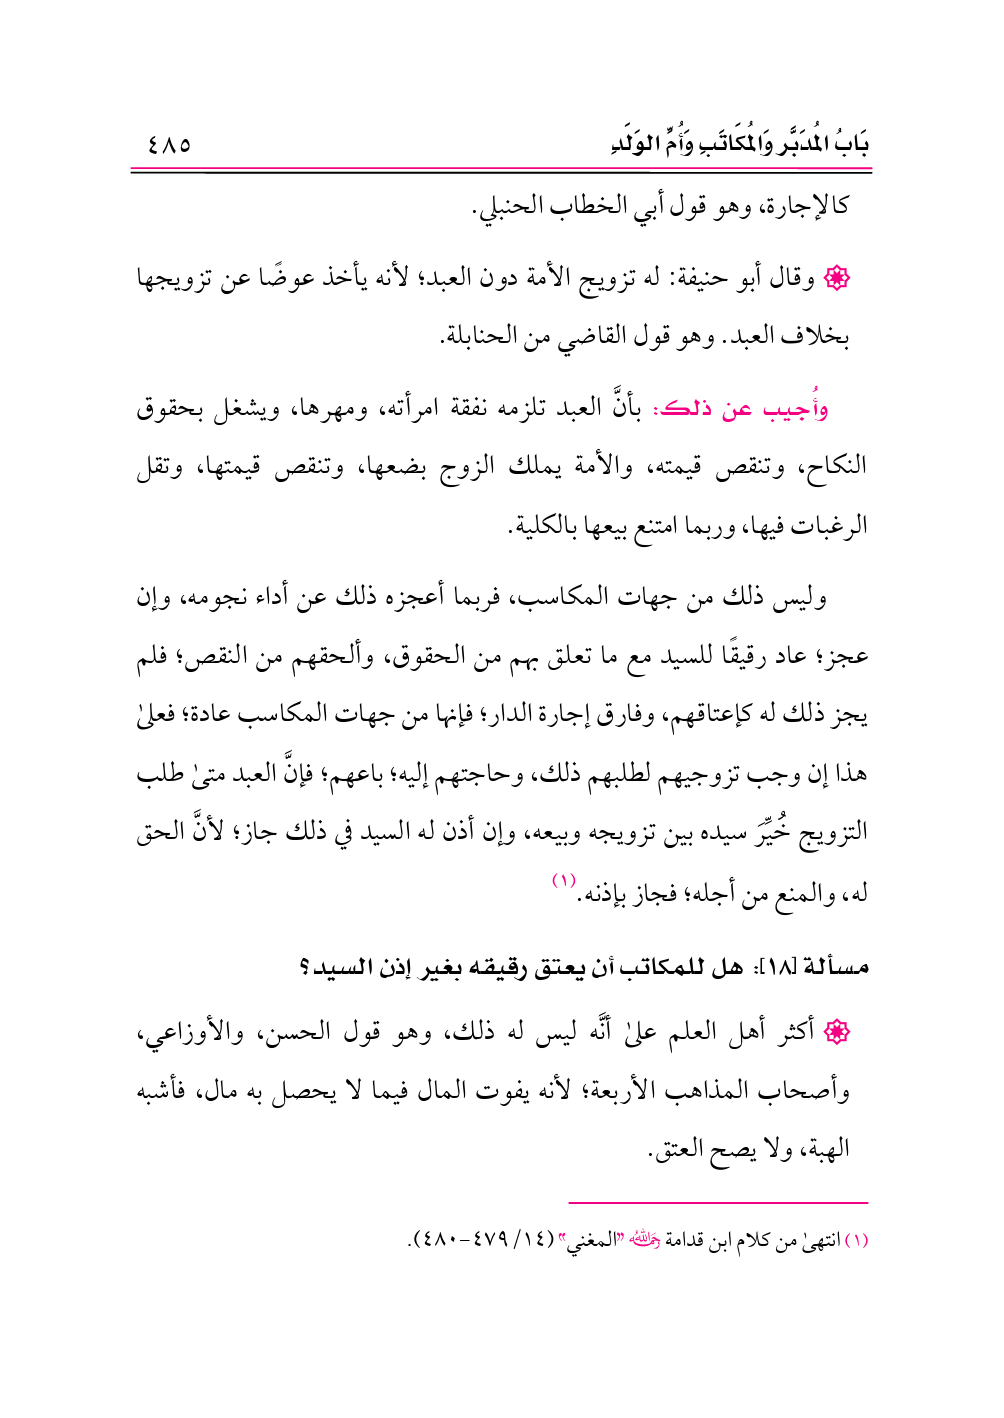 بَابُ المُدَبَّر وَالمُكَاتَبِ وَأُمِّ الوَلَدِ ٤٨٥
كالإجارة، وهو قول أبي الخطاب الحنبلي.
وقال أبو حنيفة: له تزويج الأمة دون العبد؛ لأنه يأخذ عوضًا عن تزويجها
بخلاف العبد. وهو قول القاضي من الحنابلة.
وأُجيب عن ذلك: بأنَّ العبد تلزمه نفقة امرأته، ومهرها، ويشغل بحقوق
النكاح، وتنقص قيمته، والأمة يملك الزوج بضعها، وتنقص قيمتها، وتقل
الرغبات فيها، وربما امتنع بيعها بالكلية.
وليس ذلك من جهات المكاسب، فربما أعجزه ذلك عن أداء نجومه، وإن
عجز؛ عاد رقيقًا للسيد مع ما تعلق بهم من الحقوق، وألحقهم من النقص؛ فلم
يجز ذلك له كإعتاقهم، وفارق إجارة الدار؛ فإنها من جهات المكاسب عادة؛ فعلىٰ
هذا إن وجب تزوجيهم لطلبهم ذلك، وحاجتهم إليه؛ باعهم؛ فإنَّ العبد متىٰ طلب
التزويج خُيِّرَ سيده بين تزويجه وبيعه، وإن أذن له السيد في ذلك جاز؛ لأنَّ الحق
له، والمنع من أجله؛ فجاز بإذنه.(١)
مسألة [١٨]: هل للمكاتب أن يعتق رقيقه بغير إذن السيد؟
أكثر أهل العلم علىٰ أنَّه ليس له ذلك، وهو قول الحسن، والأوزاعي،
وأصحاب المذاهب الأربعة؛ لأنه يفوت المال فيما لا يحصل به مال، فأشبه
الهبة، ولا يصح العتق.
(١) انتهىٰ من كلام ابن قدامة رحمه الله "المغني" (١٤/ ٤٧٩-٤٨٠).